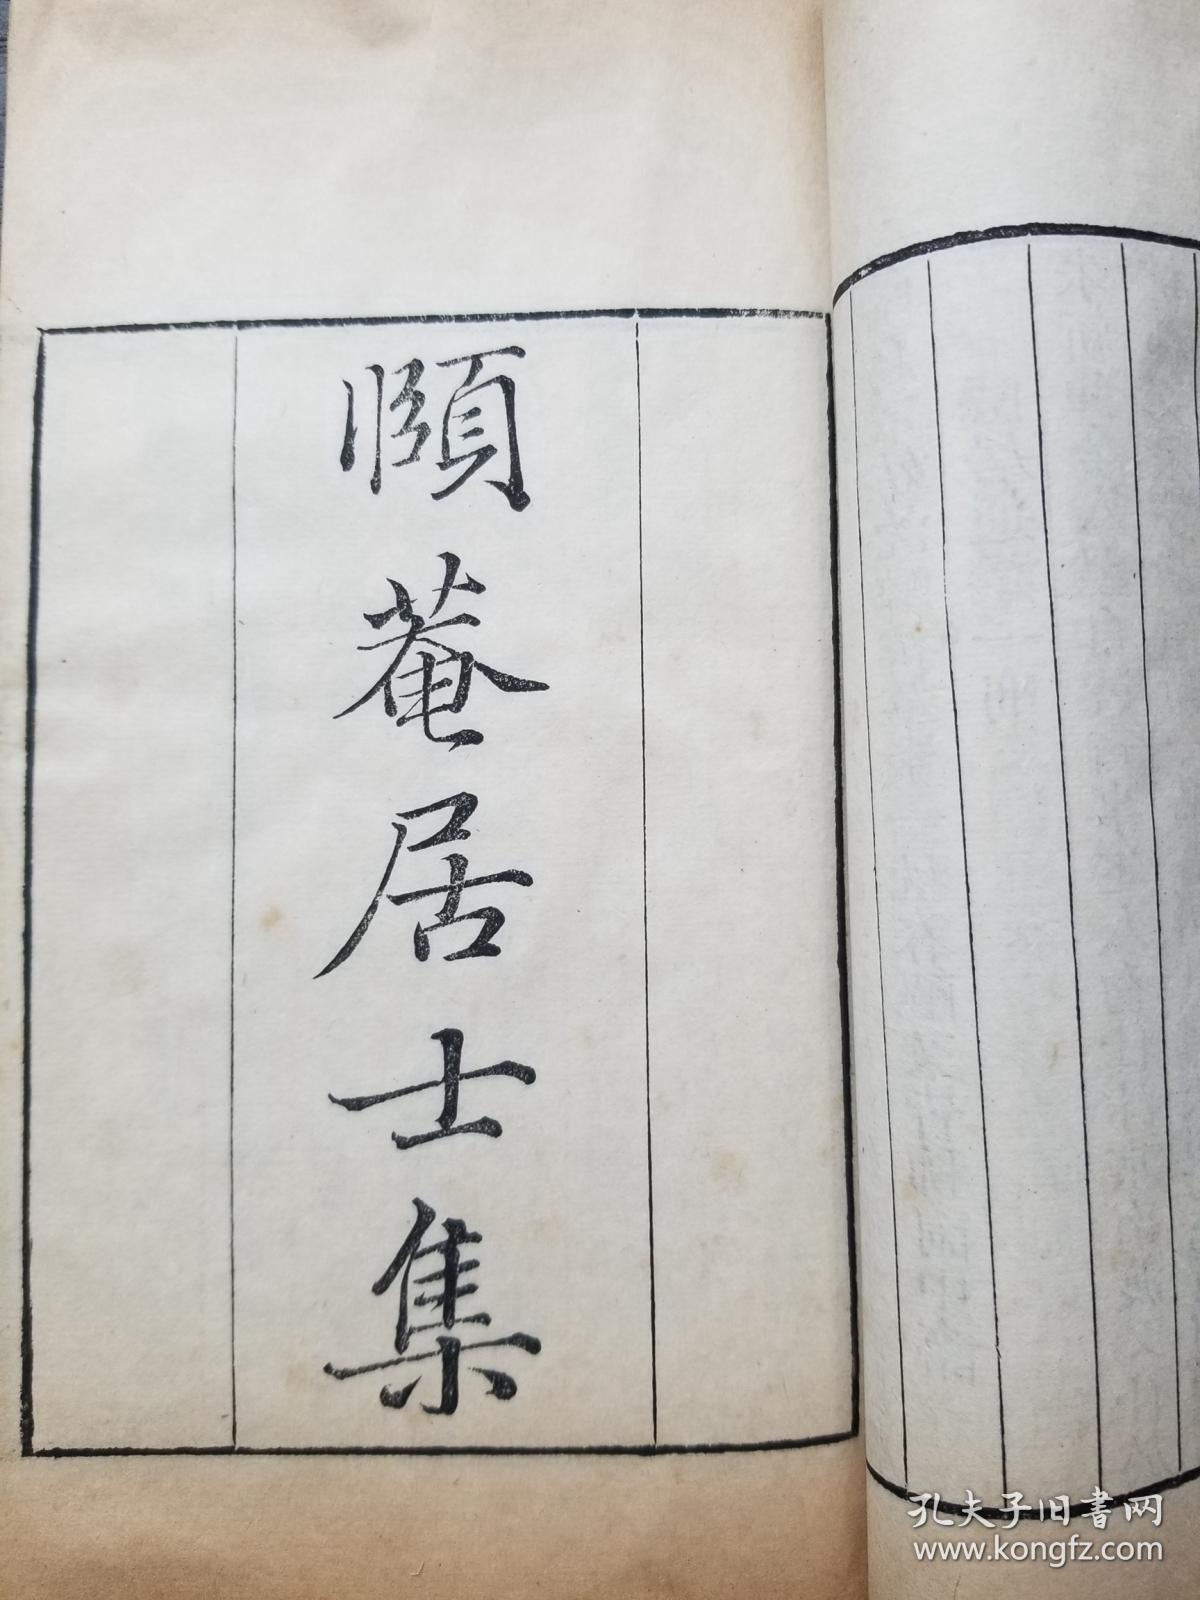 頤菴居士集
孔夫子旧书网
www.kongfz.com